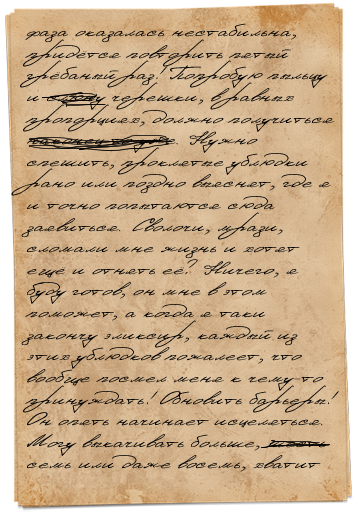 фаза оказалась нестабильна,
придётся повторить пятый
грёбаный раз! Попробую пыльцу
и черешки, в равных
пропорциях, должно получиться
Нужно
спешить, проклятые ублюдки
рано или поздно выяснят, где я
и точно попытаются сюда
заявиться. Сволочи, мрази,
сломали мне жизнь и хотят
ещё и отнять её? Ничего, я
буду готов, он мне в этом
поможет, а когда я таки
закончу эликсир, каждый из
этих ублюдков пожалеет, что
вообще посмел меня к чему-то
принуждать! Обновить барьеры!
Он опять начинает исцеляться.
Могу вкачивать больше,
семь или даже восемь, хватит